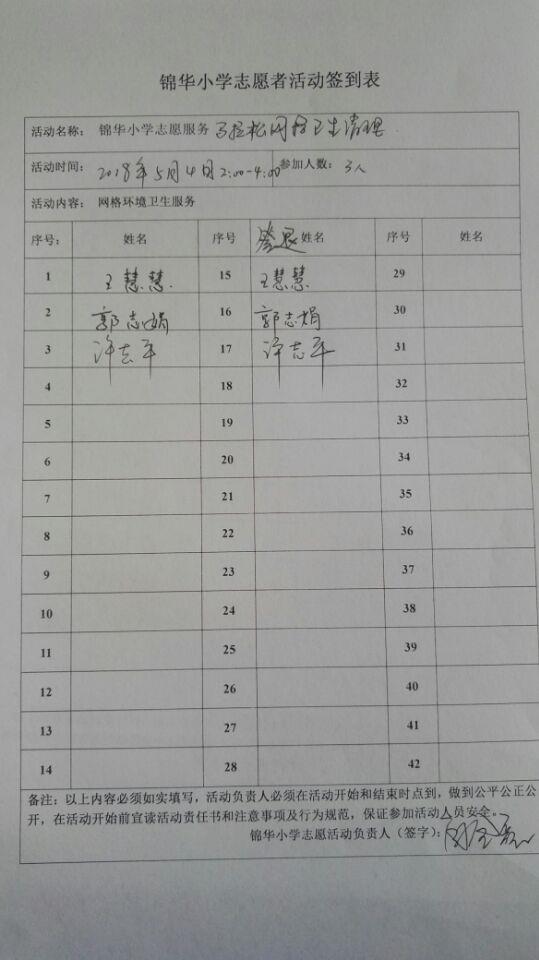 锦华小学志愿者活动签到表
活动名称： 锦华小学志愿服务 马拉松网格卫生清理
活动时间： 2018年5月4日2:00-4:00 参加人数： 3人
活动内容： 网格环境卫生服务
序号： 姓名 序号 签退 姓名 序号 姓名
1 王慧慧 15 王慧慧 29
2 郭志娟 16 郭志娟 30
3 许志平 17 许志平 31
4 18 32
5 19 33
6 20 34
7 21 35
8 22 36
9 23 37
10 24 38
11 25 39
12 26 40
13 27 41
14 28 42
备注：以上内容必须如实填写，活动负责人必须在活动开始和结束时点到，做到公平公正公
开，在活动开始前宣读活动责任书和注意事项及行为规范，保证参加活动人员安全。
锦华小学志愿活动负责人（签字）：